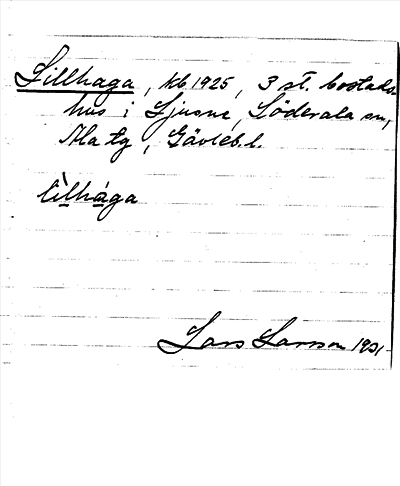 Lillhaga, kb 1925, 3 st. bostads-
hus i Ljusne, Söderala sn,
Ala tg, Gävleb. l.
lìlhága
Lars Larson 1931